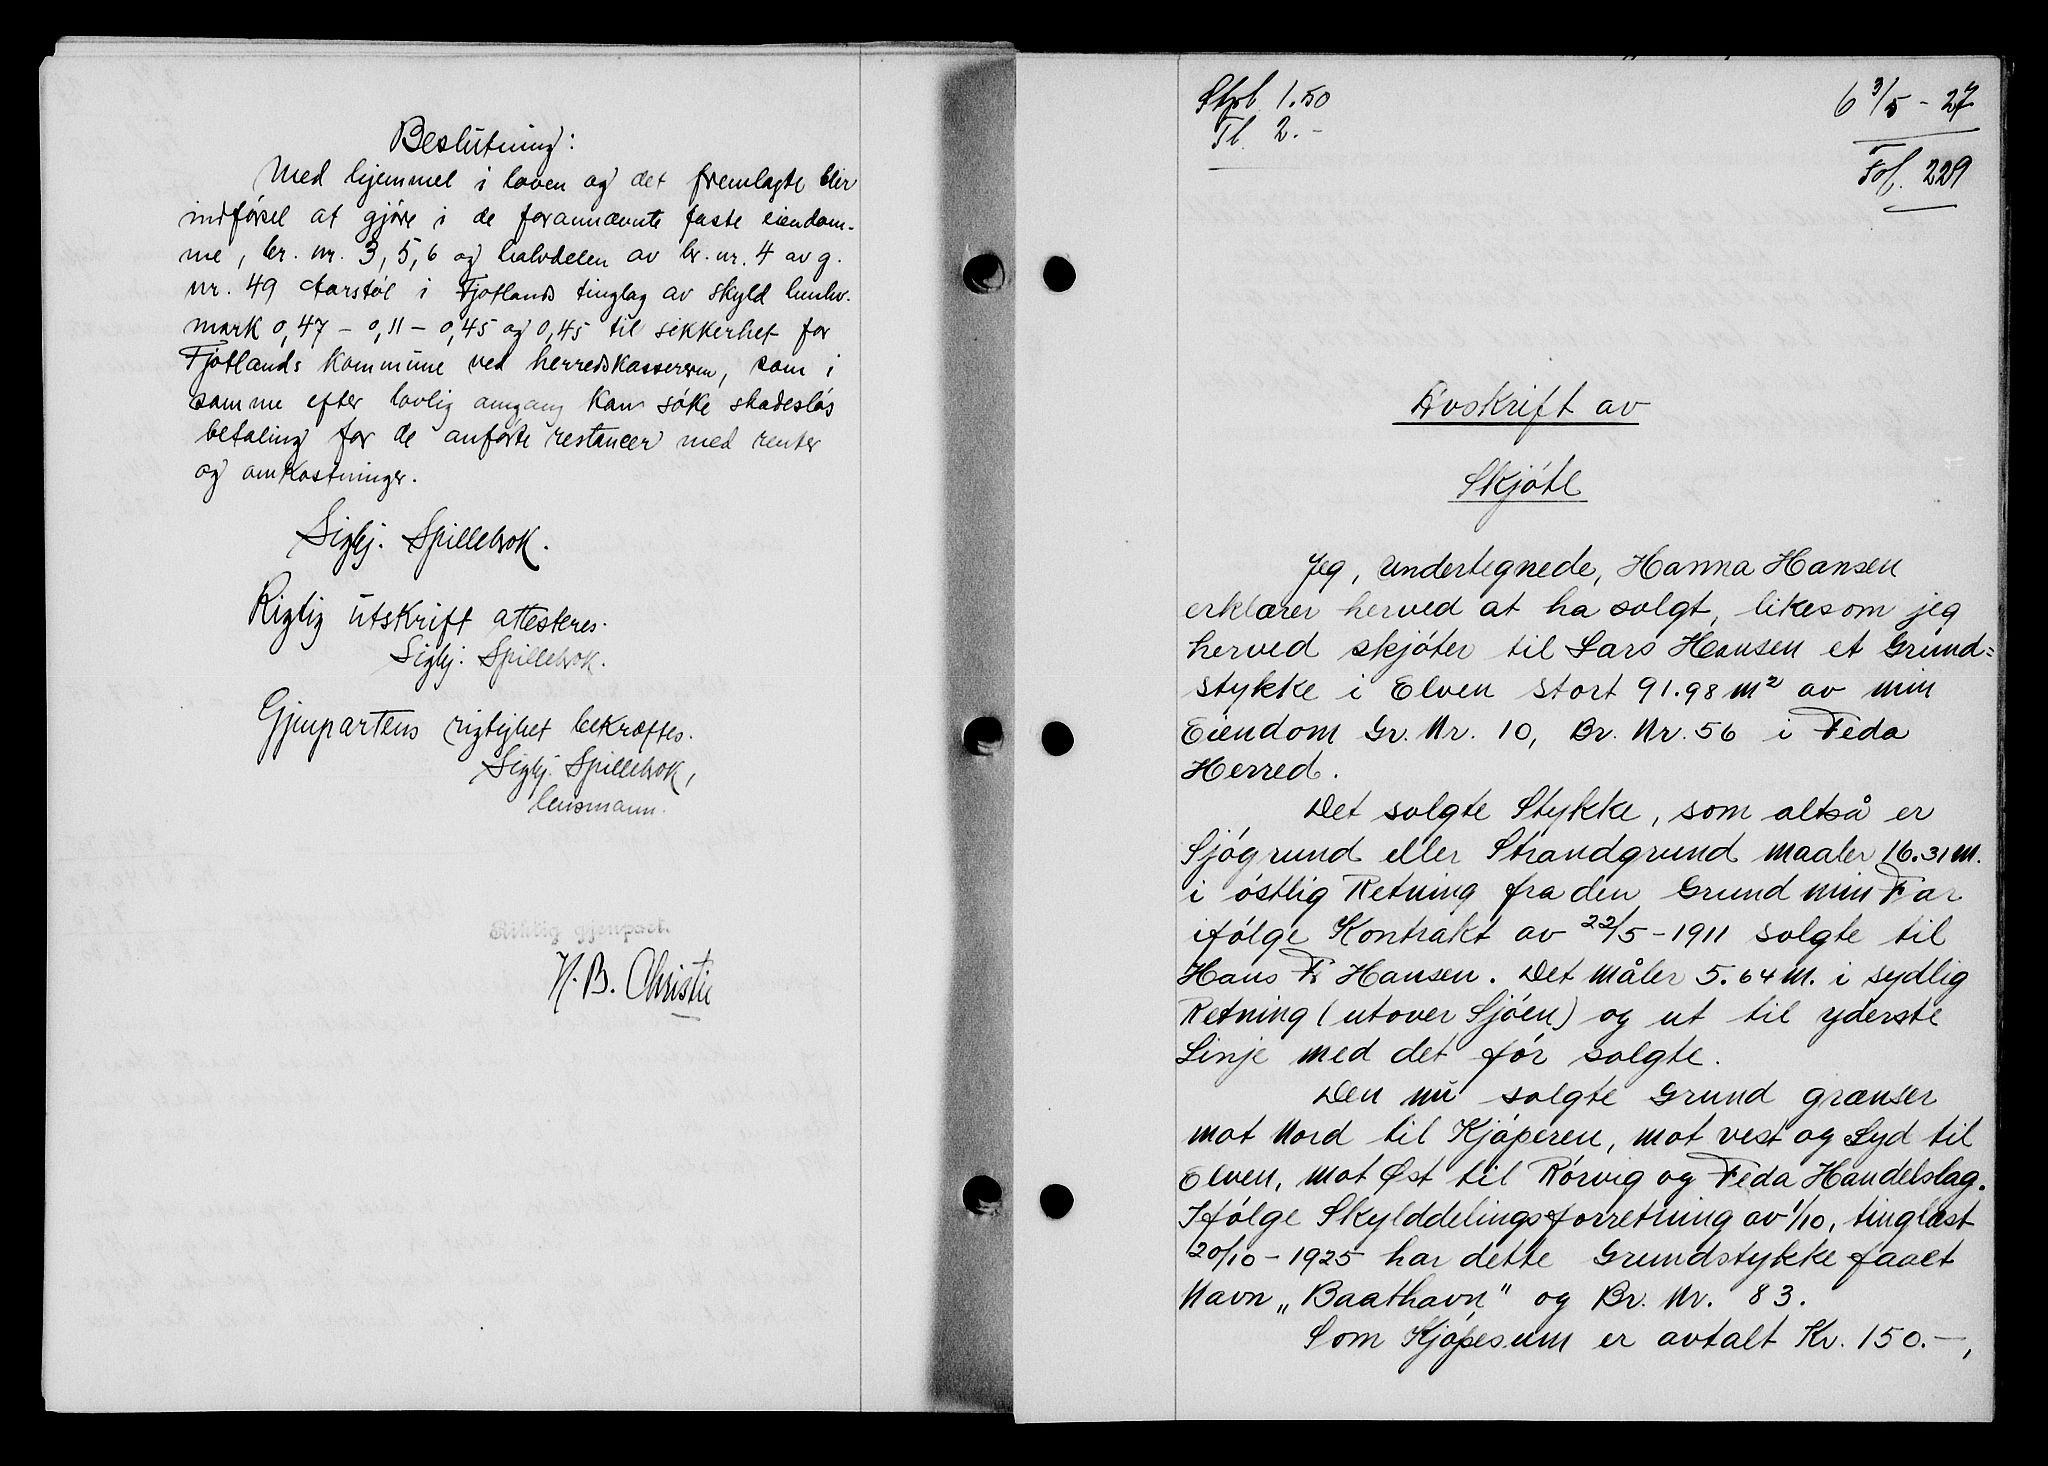 Beslutning:
Med hjemmel i loven og det fremlagte blir
indførsel at gjøre i de forannævnte faste eiendom-
me, br. nr. 3, 5, 6 og halvdelen av br. nr. 4 av g.
nr. 49 Aarstøl i Fjotlands tinglag av skyld henhv.
mark 0,47 – 0,11 – 0,45 og 0,45 til sikkerhet for
Fjotlands kommune ved herredskassereren, som i
samme efter lovlig omgang kan søke skadesløs
betaling for de anførte restancer med renter
og omkostninger.
Sigbj. Spillebrok.
Rigtig utskrift attesteres.
Sigbj. Spillebrok.
Gjenpartens rigtighet bekræftes.
Sigbj. Spillebrok,
lensmann.
Riktig gjenpart.
H. B. Christie
Stpl. 1.50
Tl. 2.-
6 3/5 - 27
Fol. 229
Avskrift av
Skjøte
Jeg, undertegnede, Hanna Hansen
erklærer herved at ha solgt, likesom jeg
herved skjøter til Lars Hansen et Grund=
stykke i Elven stort 91.98 m² av min
Eiendom Gr. Nr. 10, Br. Nr. 56 i Feda
Herred.
Det solgte Stykke, som altså er
Sjøgrund eller Strandgrund maaler 16.31 m.
i østlig Retning fra den Grund min Far
ifølge Kontrakt av 22/5 - 1911 solgte til
Hans Fr Hansen. Det måler 5.64 m. i sydlig
Retning (utover Sjøen) og ut til yderste
Linje med det før solgte.
Den nu solgte Grund grænser
mot Nord til Kjøperen, mot vest og Syd til
Elven, mot Øst til Rørvig og Feda Handelslag.
Ifølge Skylddelingsforretning av 1/10, tinglæst
20/10 - 1925 har dette Grundstykke faaet
Navn „Baathavn" og Br. Nr. 83.
Som Kjøpesum er avtalt Kr. 150.-,